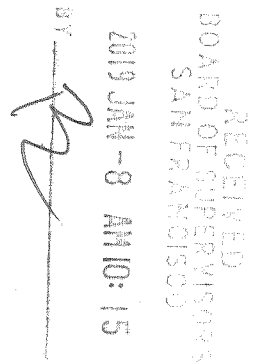 RECEIVED
BOARD OF SUPERVISORS
SAN FRANCISCO
2019 JAN -8 AM 10: 15
BY